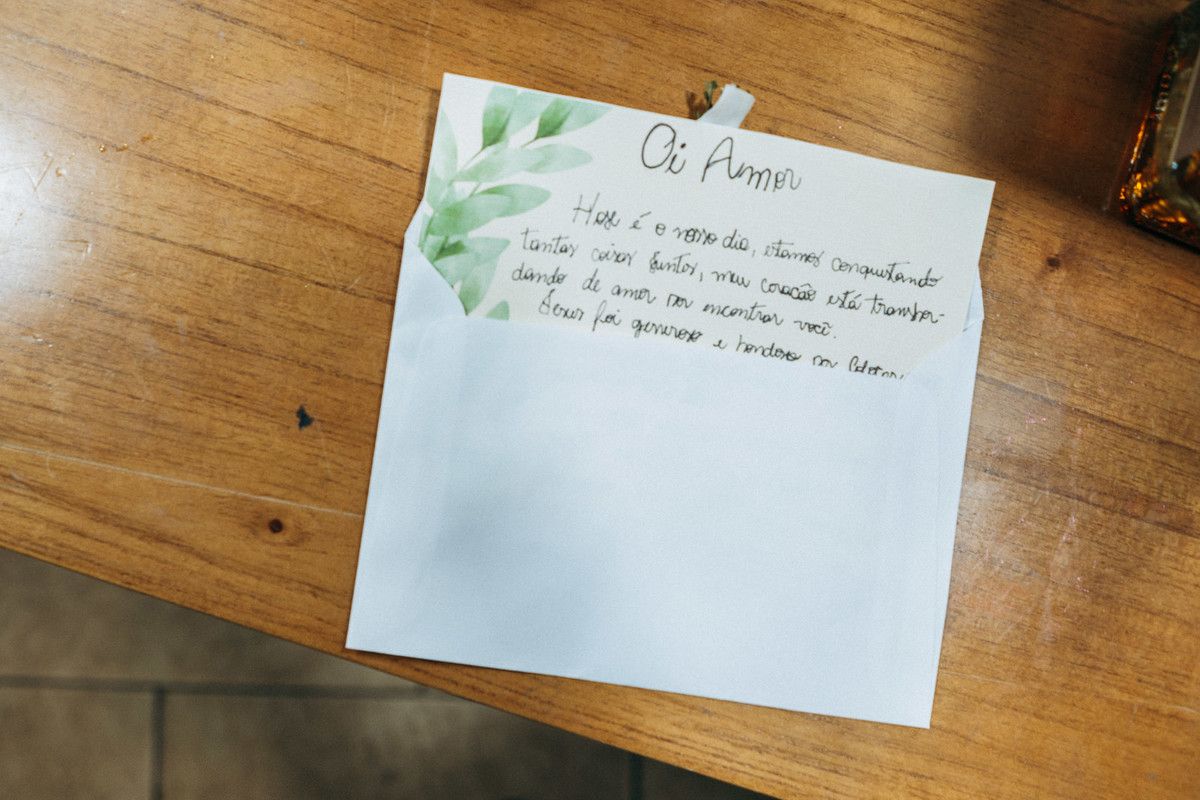 Oi Amor
Hoje é o nosso dia, estamos conquistando
tantas coisas juntos, meu coração está transbor-
dando de amor por encontrar você.
Jesus foi generoso e bondoso por